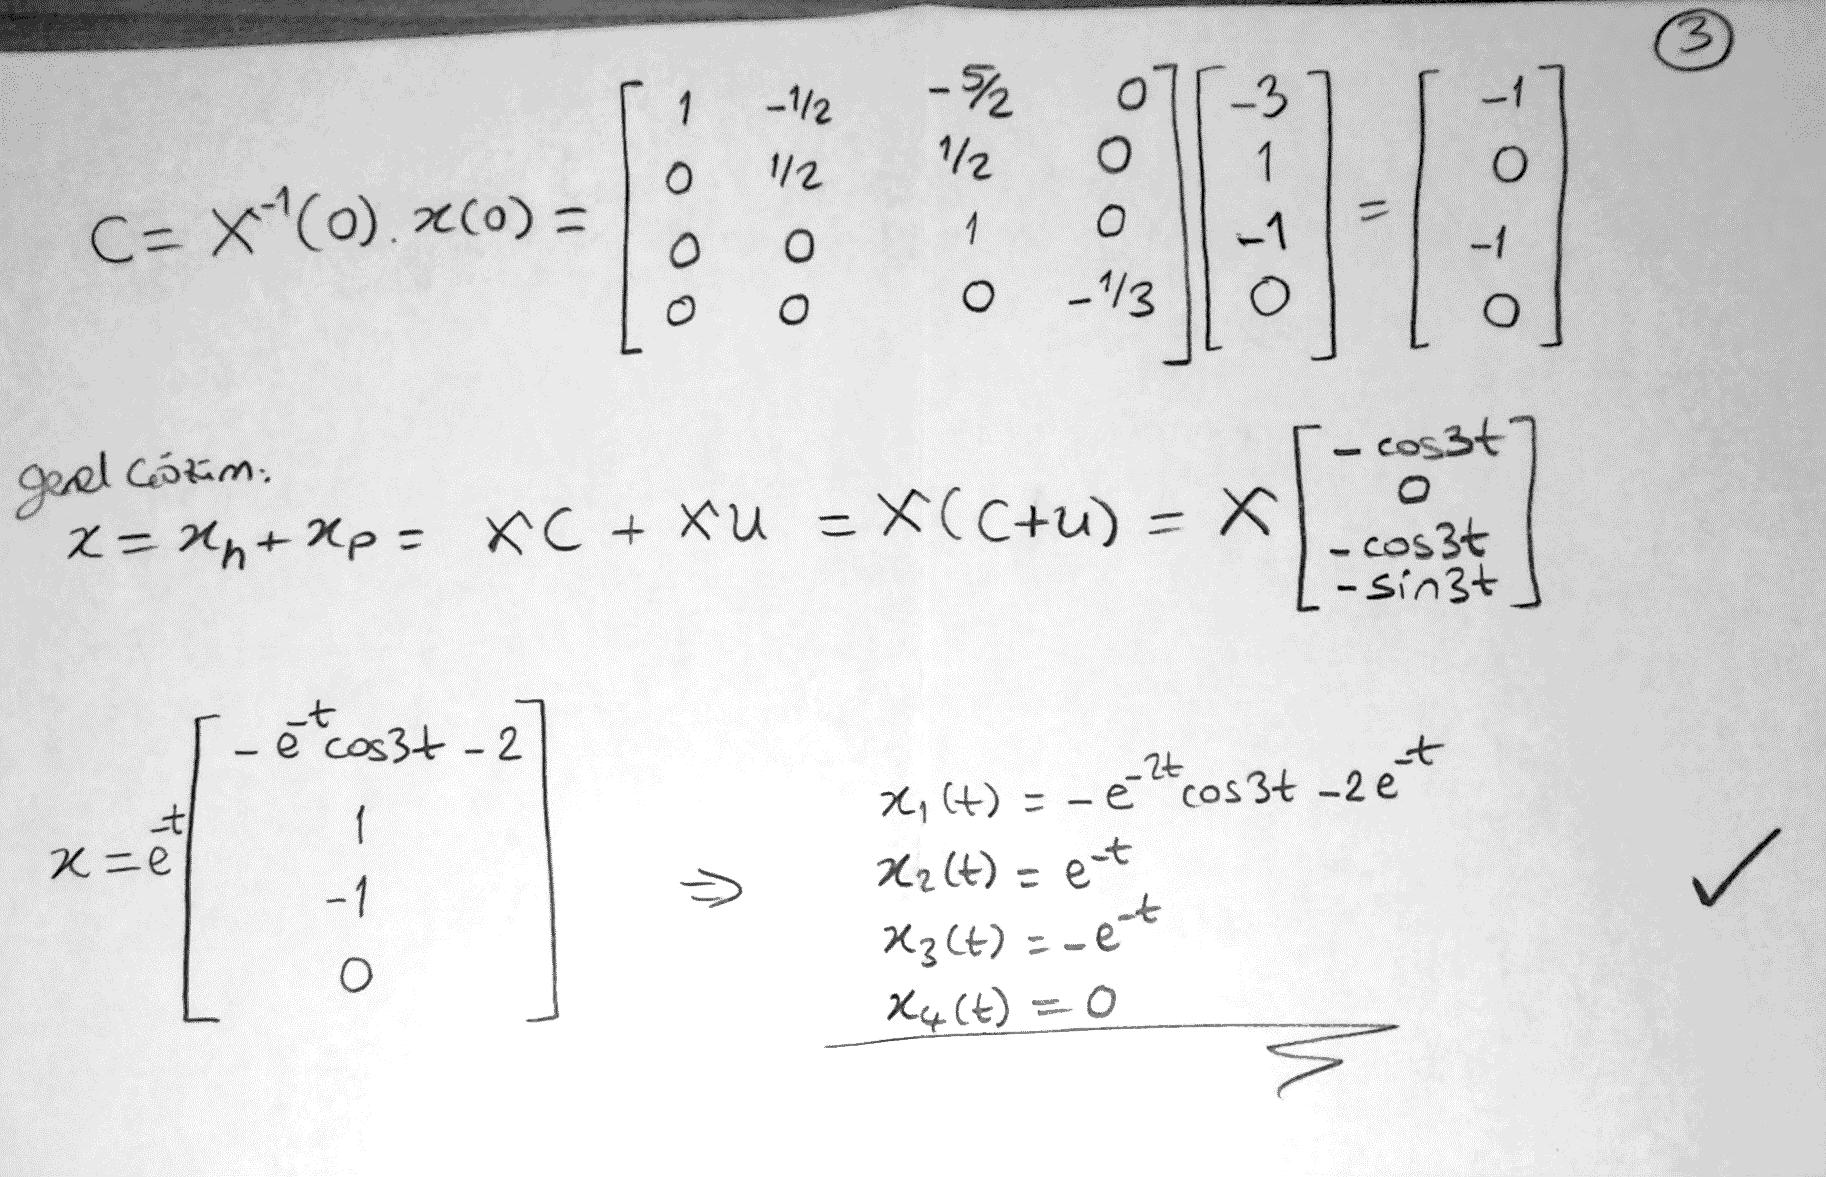 ③
C = X⁻¹(0). x(0) = [1 -1/2 -5/2 0; 0 1/2 1/2 0; 0 0 1 0; 0 0 0 -1/3] [-3; 1; -1; 0] = [-1; 0; -1; 0]
genel Çözüm:
x = xₕ + xₚ = XC + Xu = X(C+u) = X [-cos3t; 0; -cos3t; -sin3t]
x = e⁻ᵗ [-e⁻ᵗcos3t - 2; 1; -1; 0] ⇒
x₁(t) = -e⁻²ᵗcos3t - 2e⁻ᵗ
x₂(t) = e⁻ᵗ
x₃(t) = -e⁻ᵗ
x₄(t) = 0
✓